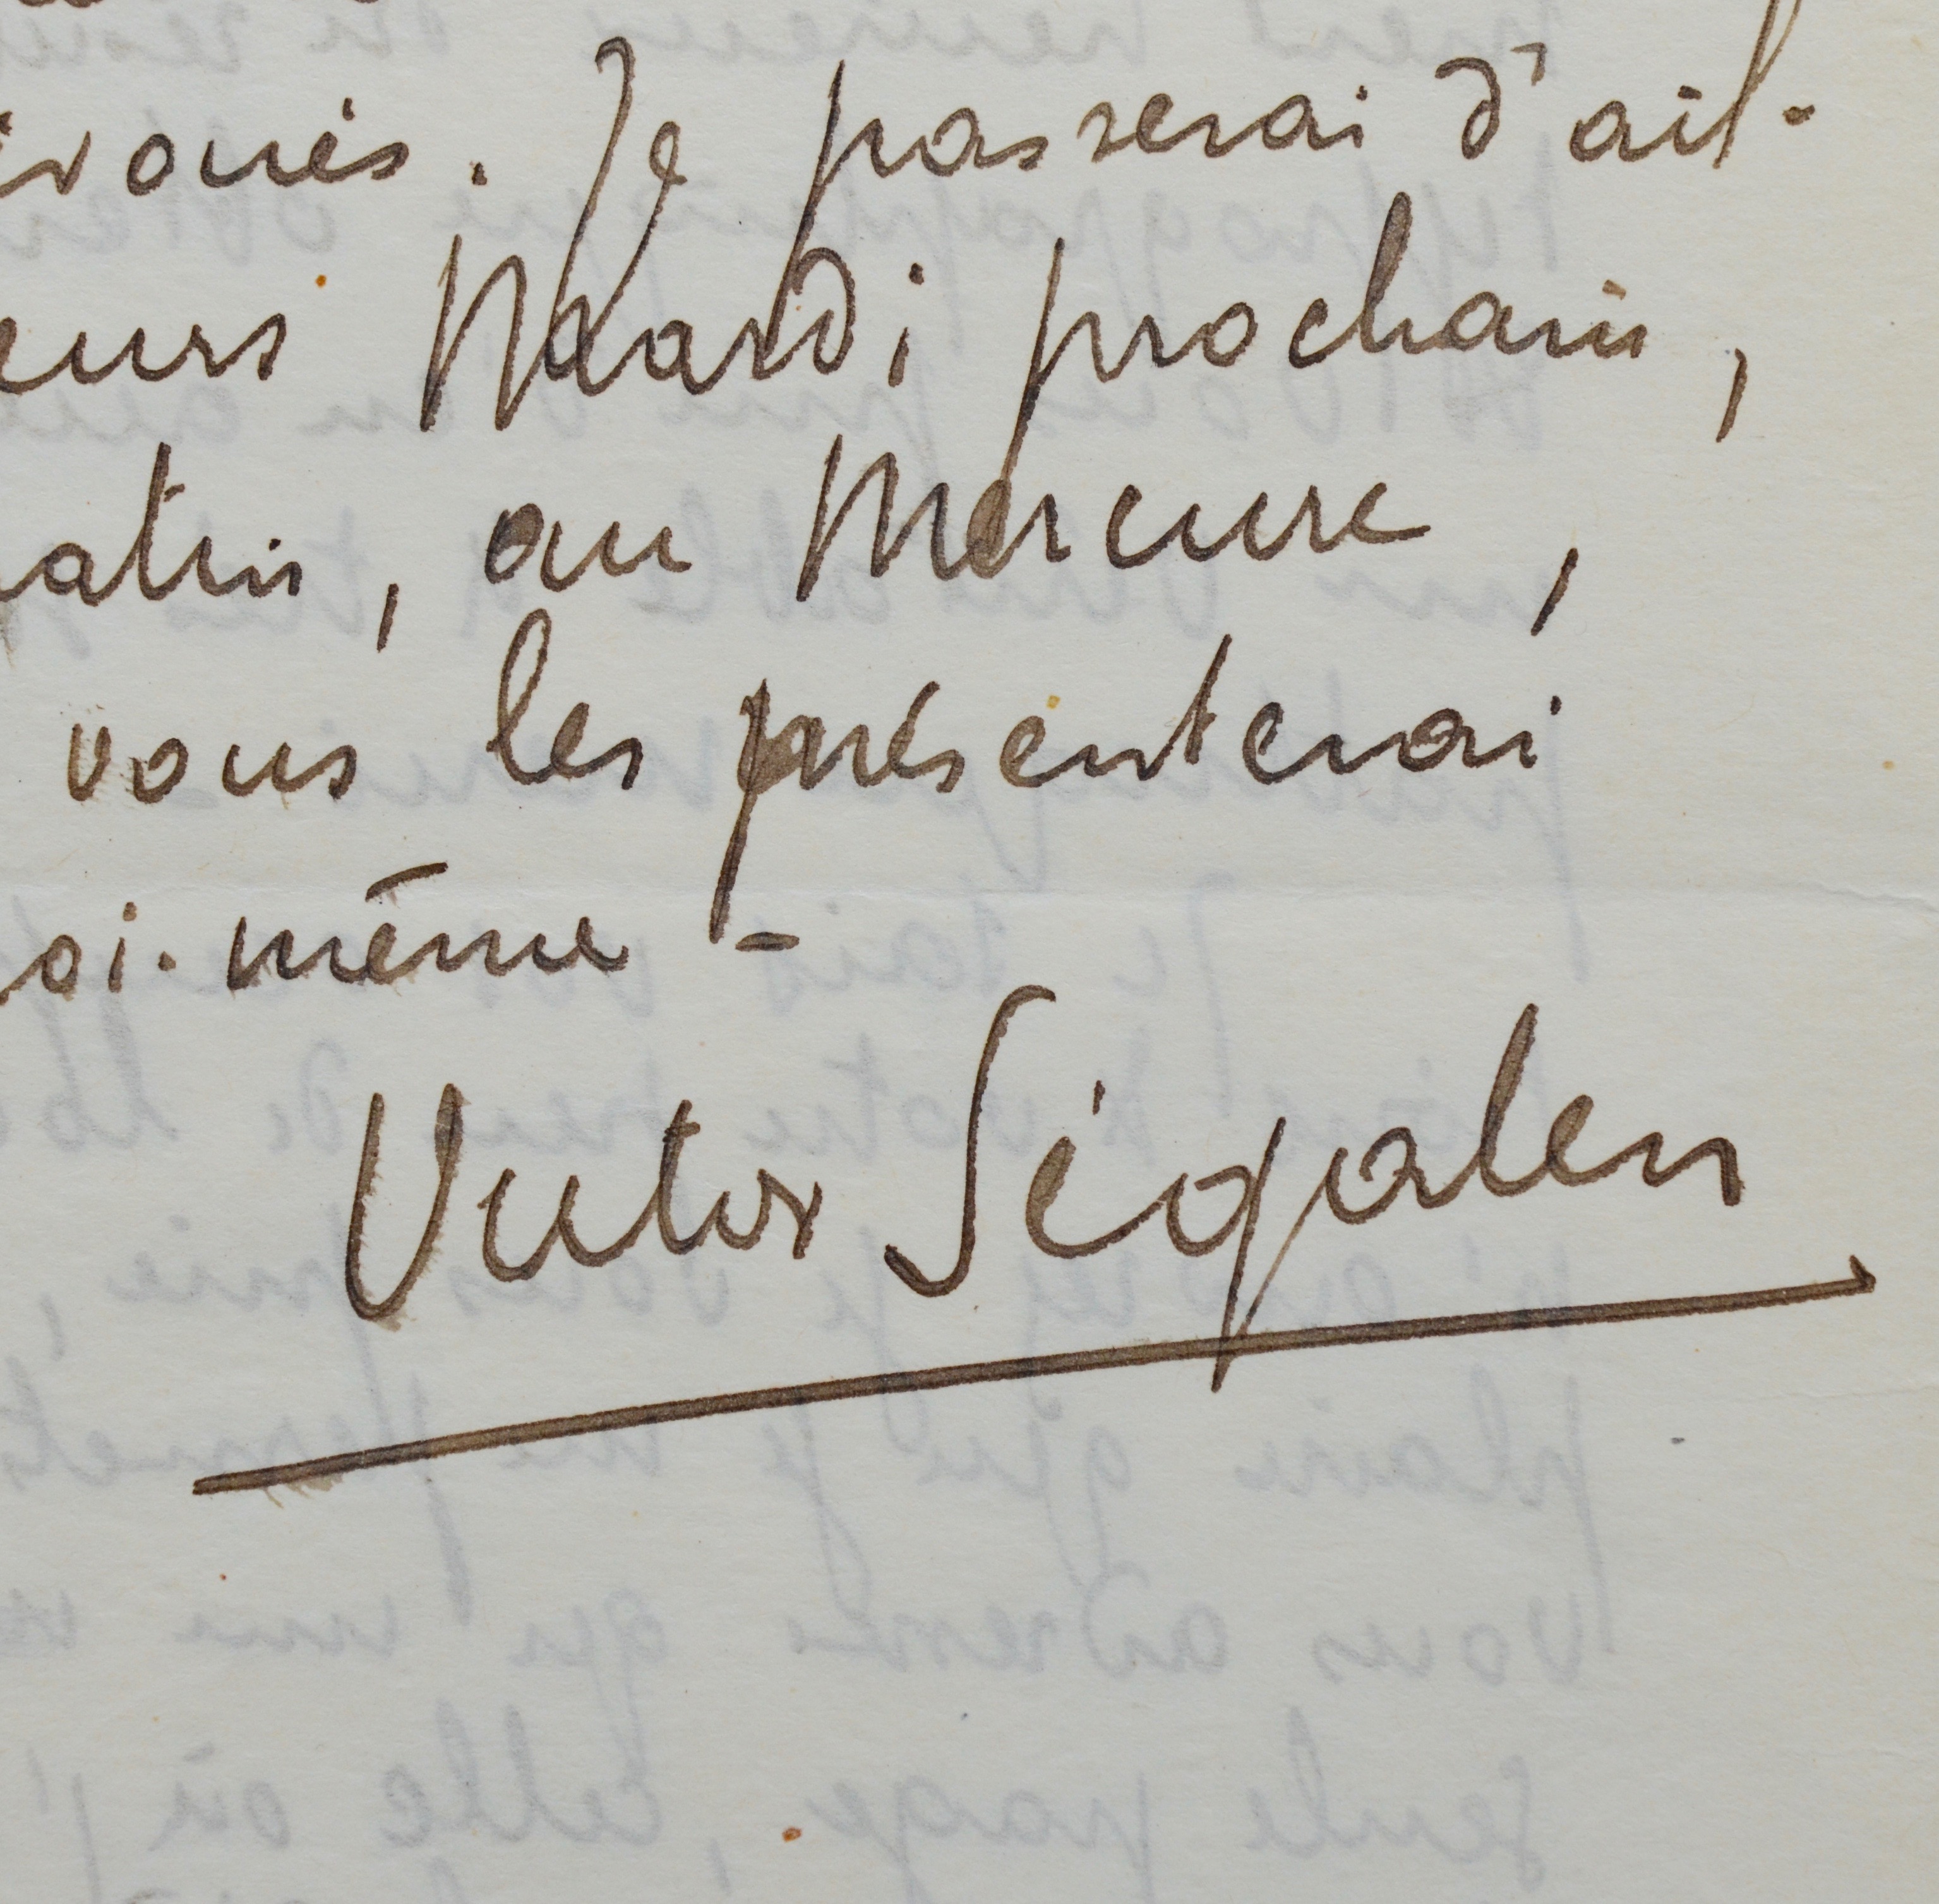 évoués. Je passerai d'ail-
eurs Mardi prochain,
matin, au Mercure,
vous les présenterai
oi-même -
Victor Ségalen